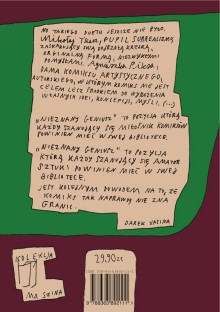 NO TAKIEGO DUETU JESZCZE NIE BYŁO.
Mikołaj Tkacz, PUPIL SURREALIZMU,
ZASKAKUJĄCY SWĄ ŚWIEŻĄ KRESKĄ,
ORYGINALNĄ FORMĄ, NIEZWYKŁYMI
POMYSŁAMI. Agnieszka Piksa,
DAMA KOMIKSU ARTYSTYCZNEGO,
AUTORSKIEGO, W KTÓRYM KOMIKS NIE JEST
CELEM LECZ ŚRODKIEM DO WYRAŻENIA
WŁASNYCH IDEI, KONCEPCJI, MYŚLI. (...)
„NIEZNANY GENIUSZ” TO POZYCJA KTÓRĄ
KAŻDY SZANUJĄCY SIĘ MIŁOŚNIK KOMIKSÓW
POWINIEN MIEĆ W SWEJ BIBLIOTECE.
„NIEZNANY GENIUSZ” TO POZYCJA
KTÓRĄ KAŻDY SZANUJĄCY SIĘ AMATOR
SZTUKI POWINIEN MIEĆ W SWEJ
BIBLIOTECE.
JEST KOLEJNYM DOWODEM NA TO, ŻE
KOMIKS TAK NAPRAWDĘ NIE ZNA
GRANIC.
DAREK VASINA
KOLEKCJA
MR SZINA
29,90ZŁ
9788363892111